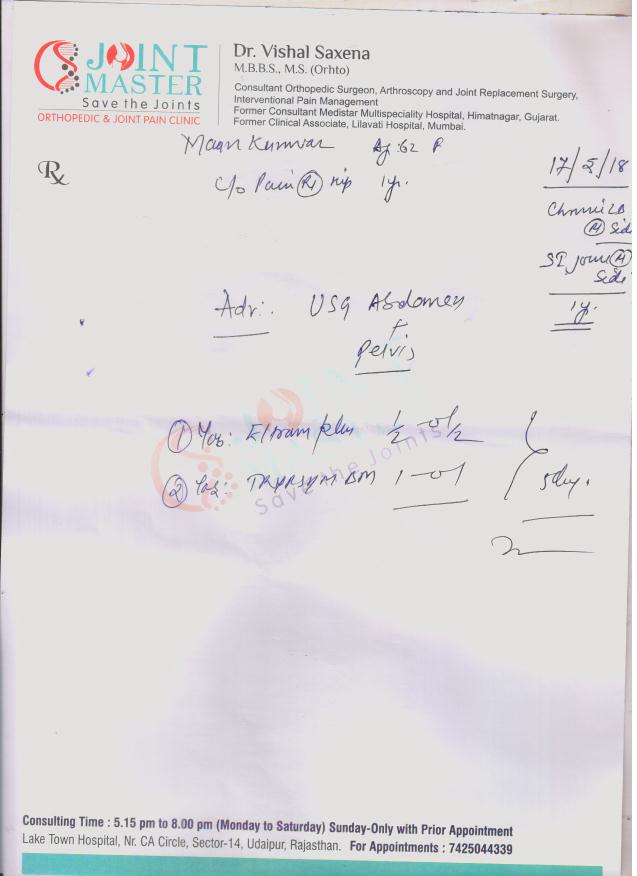 JOINT
MASTER
Save the Joints
ORTHOPEDIC & JOINT PAIN CLINIC
Dr. Vishal Saxena
M.B.B.S., M.S. (Orhto)
Consultant Orthopedic Surgeon, Arthroscopy and Joint Replacement Surgery,
Interventional Pain Management
Former Consultant Medistar Multispeciality Hospital, Himatnagar, Gujarat.
Former Clinical Associate, Lilavati Hospital, Mumbai.
Rx
Maan Kunwar 62 F
17/5/18
C/o Pain Rt hip 1yr.
Side
SI Joint
Side
1y.
Adv:. USG Abdomen
+
Pelvis
① Tab: 1/2 -o- 1/2
② Tab: 1 -o- 1
5day.
Save the Joints
Consulting Time : 5.15 pm to 8.00 pm (Monday to Saturday) Sunday-Only with Prior Appointment
Lake Town Hospital, Nr. CA Circle, Sector-14, Udaipur, Rajasthan. For Appointments : 7425044339